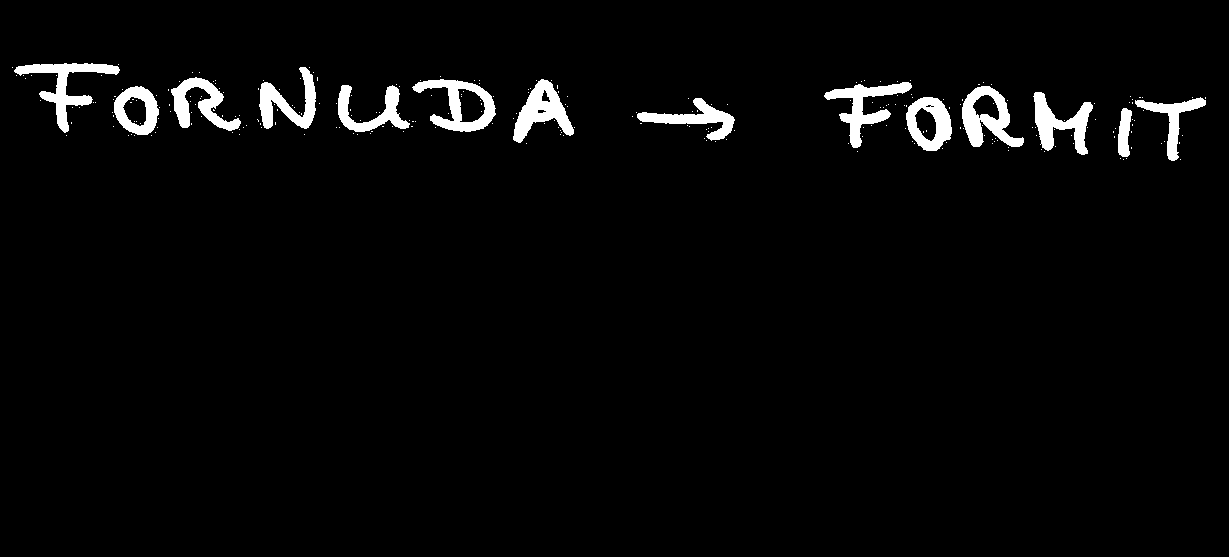 FORNUDA → FORMIT